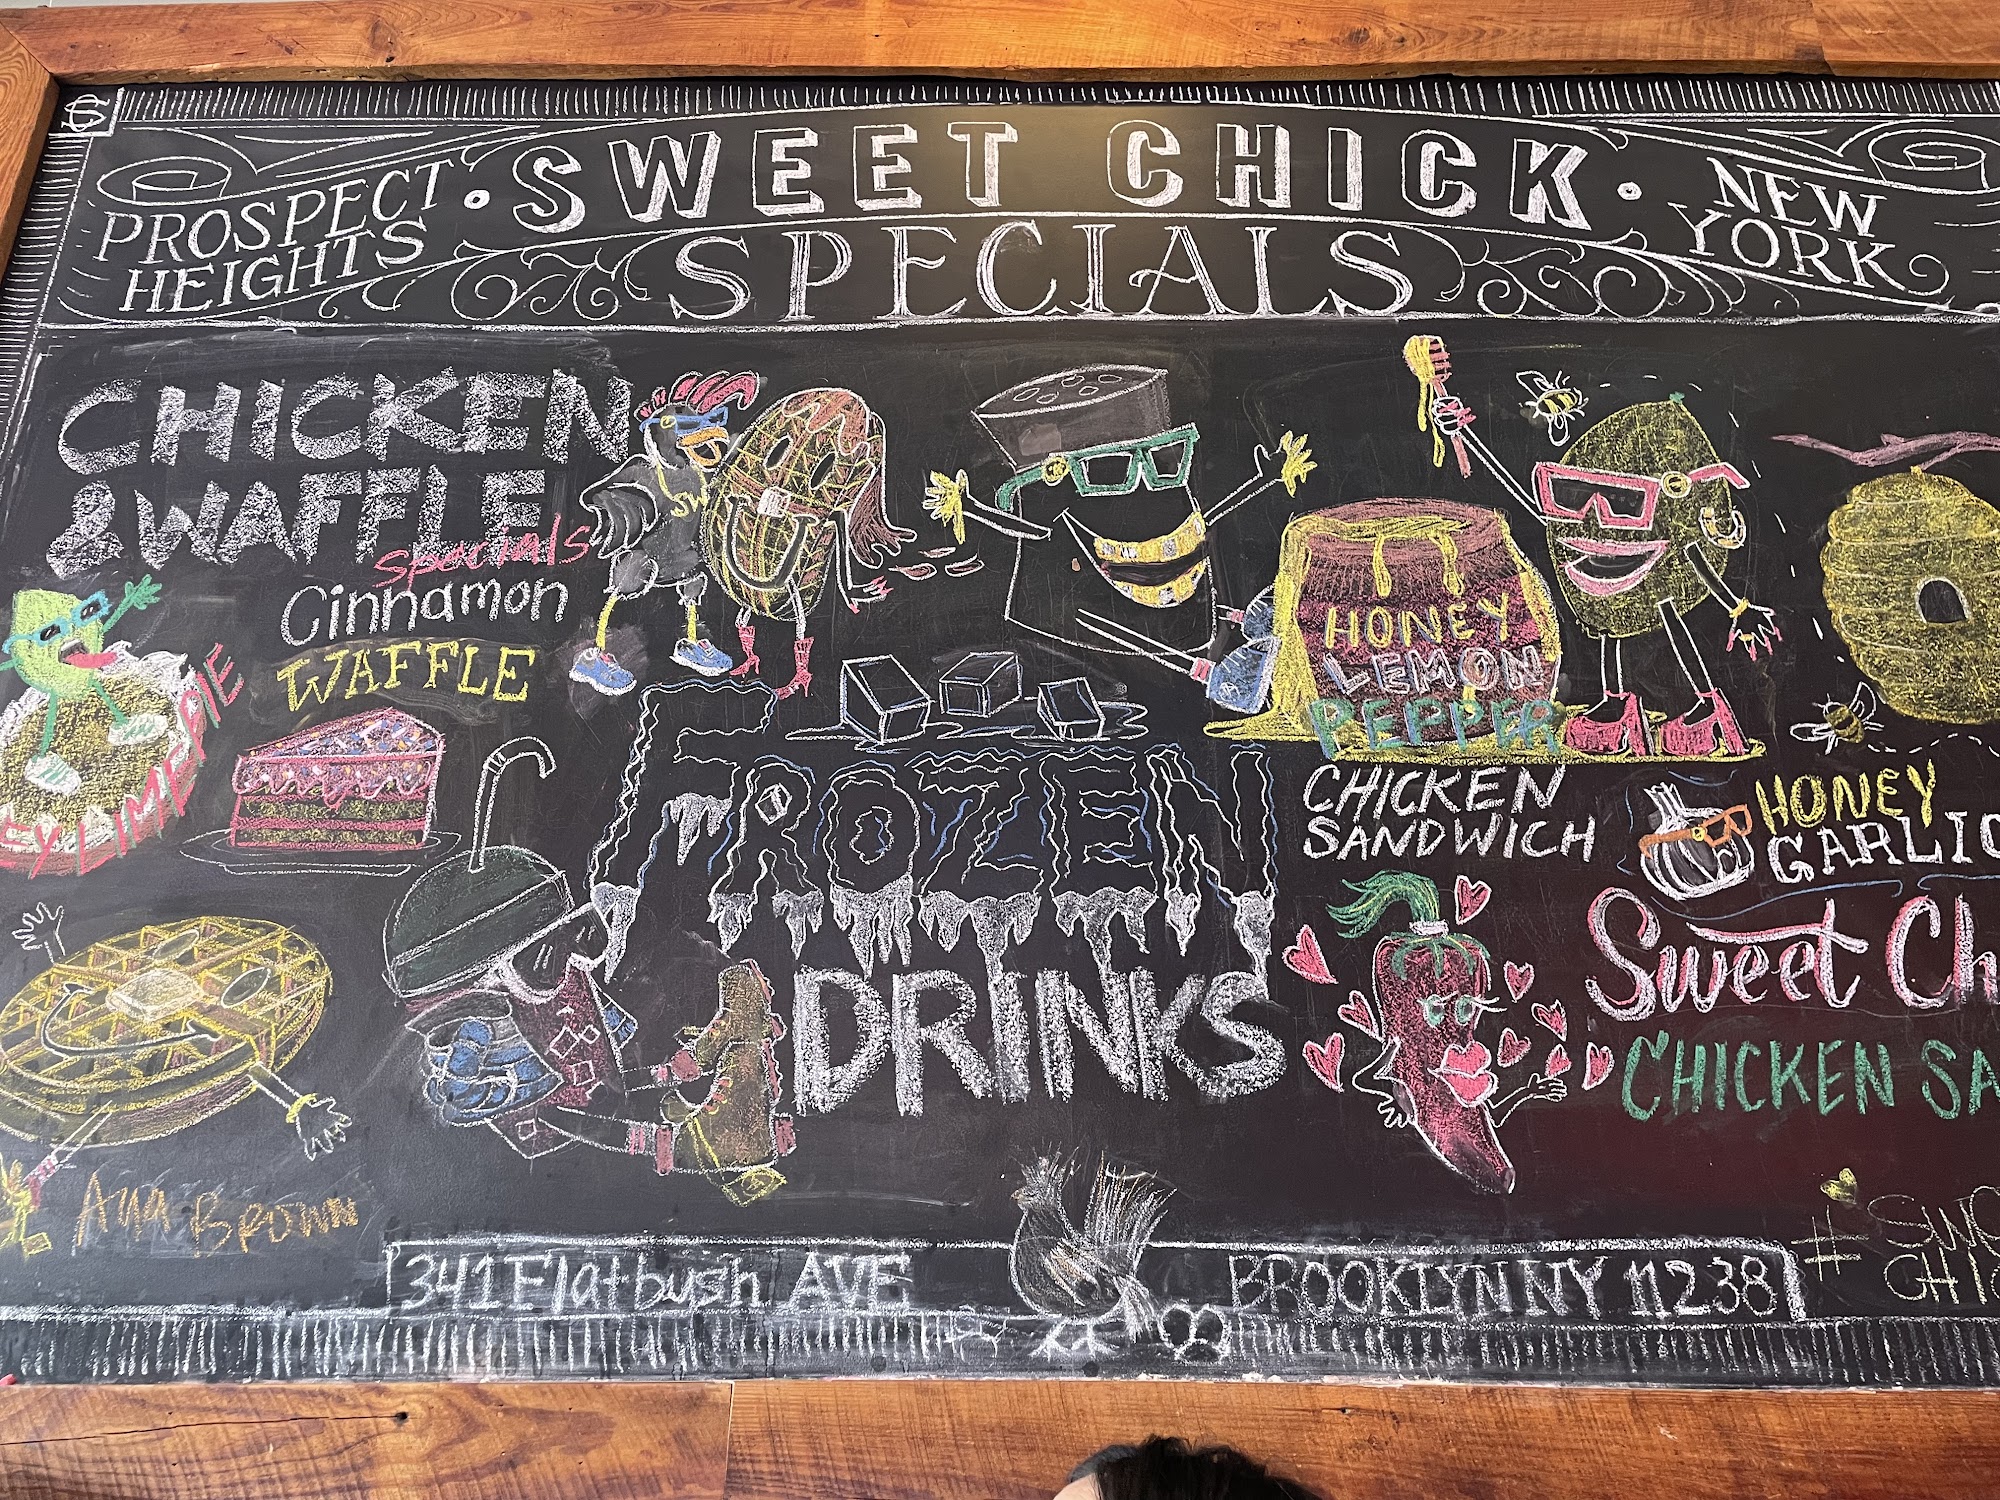 PROSPECT
HEIGHTS
SWEET CHICK
SPECIALS
NEW
YORK
CHICKEN
& WAFFLE
specials
Cinnamon
WAFFLE
SW
EY LIME PIE
FROZEN
DRINKS
HONEY
LEMON
PEPPER
CHICKEN
SANDWICH
HONEY
GARLIC
Sweet Ch
CHICKEN SA
BROWN
341 Flatbush AVE
BROOKLYN NY 11238